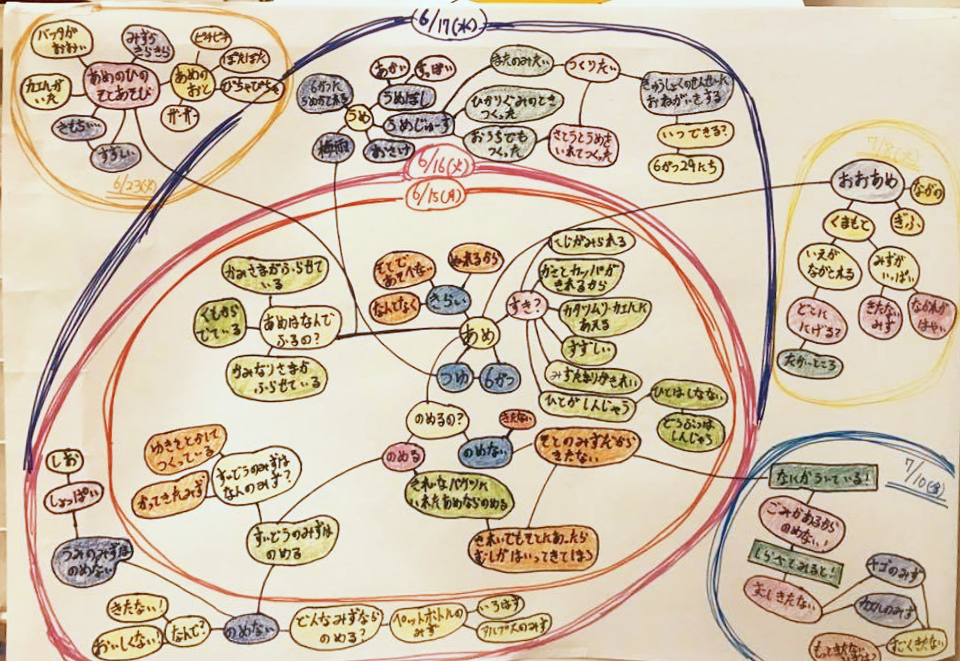 6/17(水)
バッタが
おおい
みずが
きらきら
ピチピチ
ぽたぽた
あめのひの
そとあそび
あめの
おと
びちゃびちゃ
カエルが
いた
ザーザー
きもちい…
すずしい
6/23(火)
6がつに
うめができる
あかい
すっぱい
うめ
うめぼし
うめじゅーす
おさけ
梅雨
またのみたい
つくりたい
ひかりぐみのとき
つくった
おうちでも
つくった
さとうとうめを
いれてつくった
きゅうしょくのせんせいに
おねがいする
いつできる?
6がつ29にち
6/16(火)
6/15(月)
おおあめ
ながの
くまもと
ぎふ
いえが
ながされる
みずが
いっぱい
どこに
にげる?
きたない
みず
ながれが
はやい
たかいところ
かみさまがふらせて
いる
くもから
でている
あめはなんで
ふるの?
かみなりさまが
ふらせている
そとで
あそべない
ぬれるから
なんとなく
きらい
あめ
すき?
にじがみられる
かさとカッパが
きれるから
カタツムリ・カエルに
あえる
すずしい
みずたまりがきれい
ひとがしんじゃう
ひとはしなない
どうぶつは
しんじゃう
つゆ
6がつ
のめるの?
きたない
のめる
のめない
そとのみずだから
きたない
きれいなバケツに
いれたあめならのめる
きれいでもそとにあったら
むしがはいってきてしまう
ゆきをとかして
つくっている
かってきたみず
すいどうのみずは
なんのみず?
すいどうのみずは
のめる
しお
しょっぱい
うみのみずは
のめない
きたない!
おいしくない!
なんで?
のめない
どんなみずなら
のめる?
ペットボトルの
みず
いろはす
アルプスのみず
7/10(金)
なにかういている!
ごみがあるから
のめない!
しらべてみると!
すこしきたない
ヤゴのみず
カエルのみず
すごくきたない